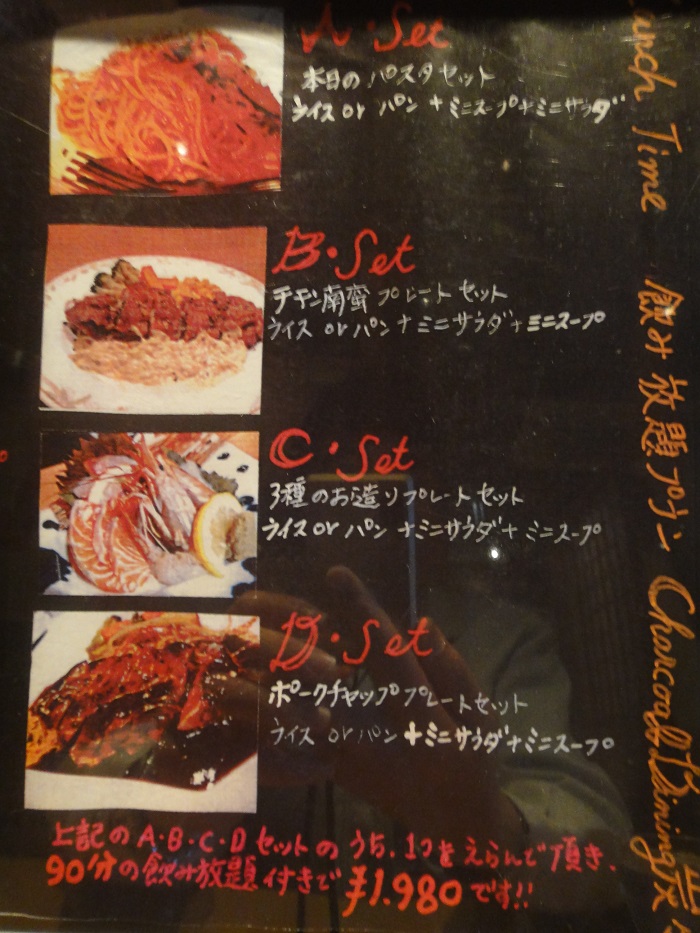 A・Set
本日のパスタセット
ライス or パン + ミニスープ + ミニサラダ
B・Set
チキン南蛮プレートセット
ライス or パン + ミニサラダ + ミニスープ
C・Set
3種のお造りプレートセット
ライス or パン + ミニサラダ + ミニスープ
D・Set
ポークチャッププレートセット
ライス or パン + ミニサラダ + ミニスープ
上記のA・B・C・Dセットのうち、1つをえらんで頂き、
90分の飲み放題付きで ¥1.980です!!
Lunch Time 飲み放題プラン Charcoal Dining